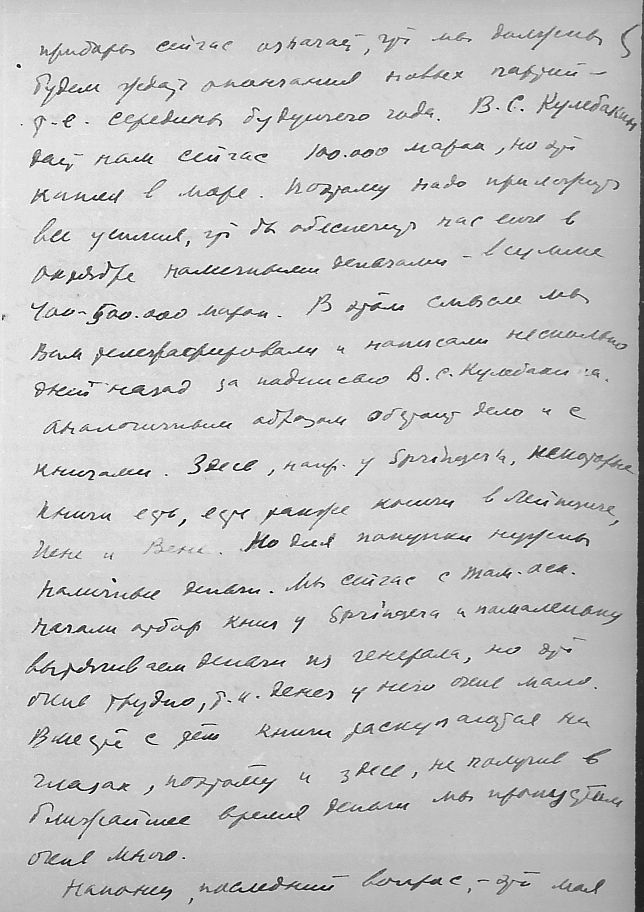 приборы сейчас означает, что мы должны
будем ждать окончания новых партий –
т.е. середины будущего года. В.С. Кулебакин
даёт нам сейчас 100.000 марок, но это
капля в море. Поэтому надо приложить
все усилия, что бы обеспечить нас ещё в
октябре наличными деньгами – в сумме
400–500.000 марок. В этом смысле мы
Вам телеграфировали и написали несколько
дней назад за подписью В.С. Кулебакина.
Аналогичным образом обстоит дело и с
книгами. Здесь, напр. у Springer'а, некоторые
книги есть, есть также книги в Лейпциге,
Иене и Вене. Но для покупки нужны
наличные деньги. Мы сейчас с
начали отбор книг у Springera и помаленьку
вытягиваем деньги из генерала, но это
очень трудно, т.к. денег у него очень мало.
Вместе с тем книги раскупаются на
глазах, поэтому и здесь, не получив в
ближайшее время деньги мы пропустим
очень много.
Наконец, последний вопрос, – это моя